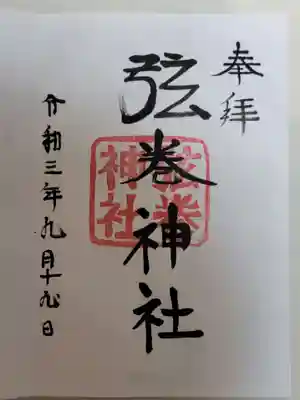 奉拝
弦巻神社
弦巻神社
令和三年九月十九日